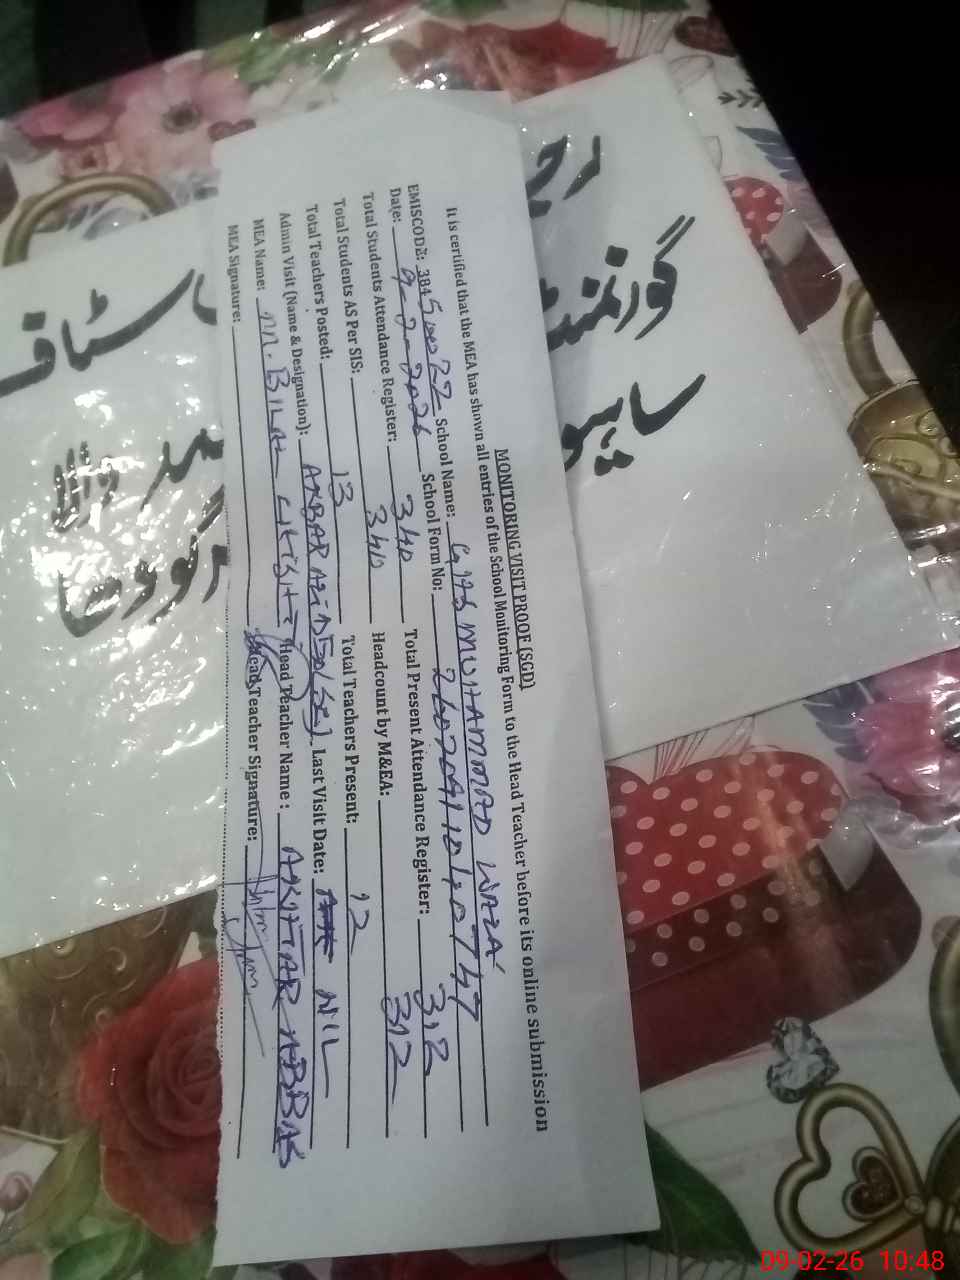 MONITORING VISIT PROOF (SGD)
It is certified that the MEA has shown all entries of the School Monitoring Form to the Head Teacher before its online submission
EMISCODE: 384 School Name: MUHAMMAD WALA
Date: 9-2-2026 School Form No:
Total Students Attendance Register: 340 Total Present Attendance Register: 312
Total Students AS Per SIS: 340 Headcount by M&EA: 312
Total Teachers Posted: 13 Total Teachers Present: 12
Admin Visit (Name & Designation): AKBAR Last Visit Date: NIL
MEA Name: M. BILAL Head Teacher Name : AKHTAR ABBAS
MEA Signature: Head Teacher Signature:
گورنمنٹ
سٹاف
والا
09-02-26 10:48